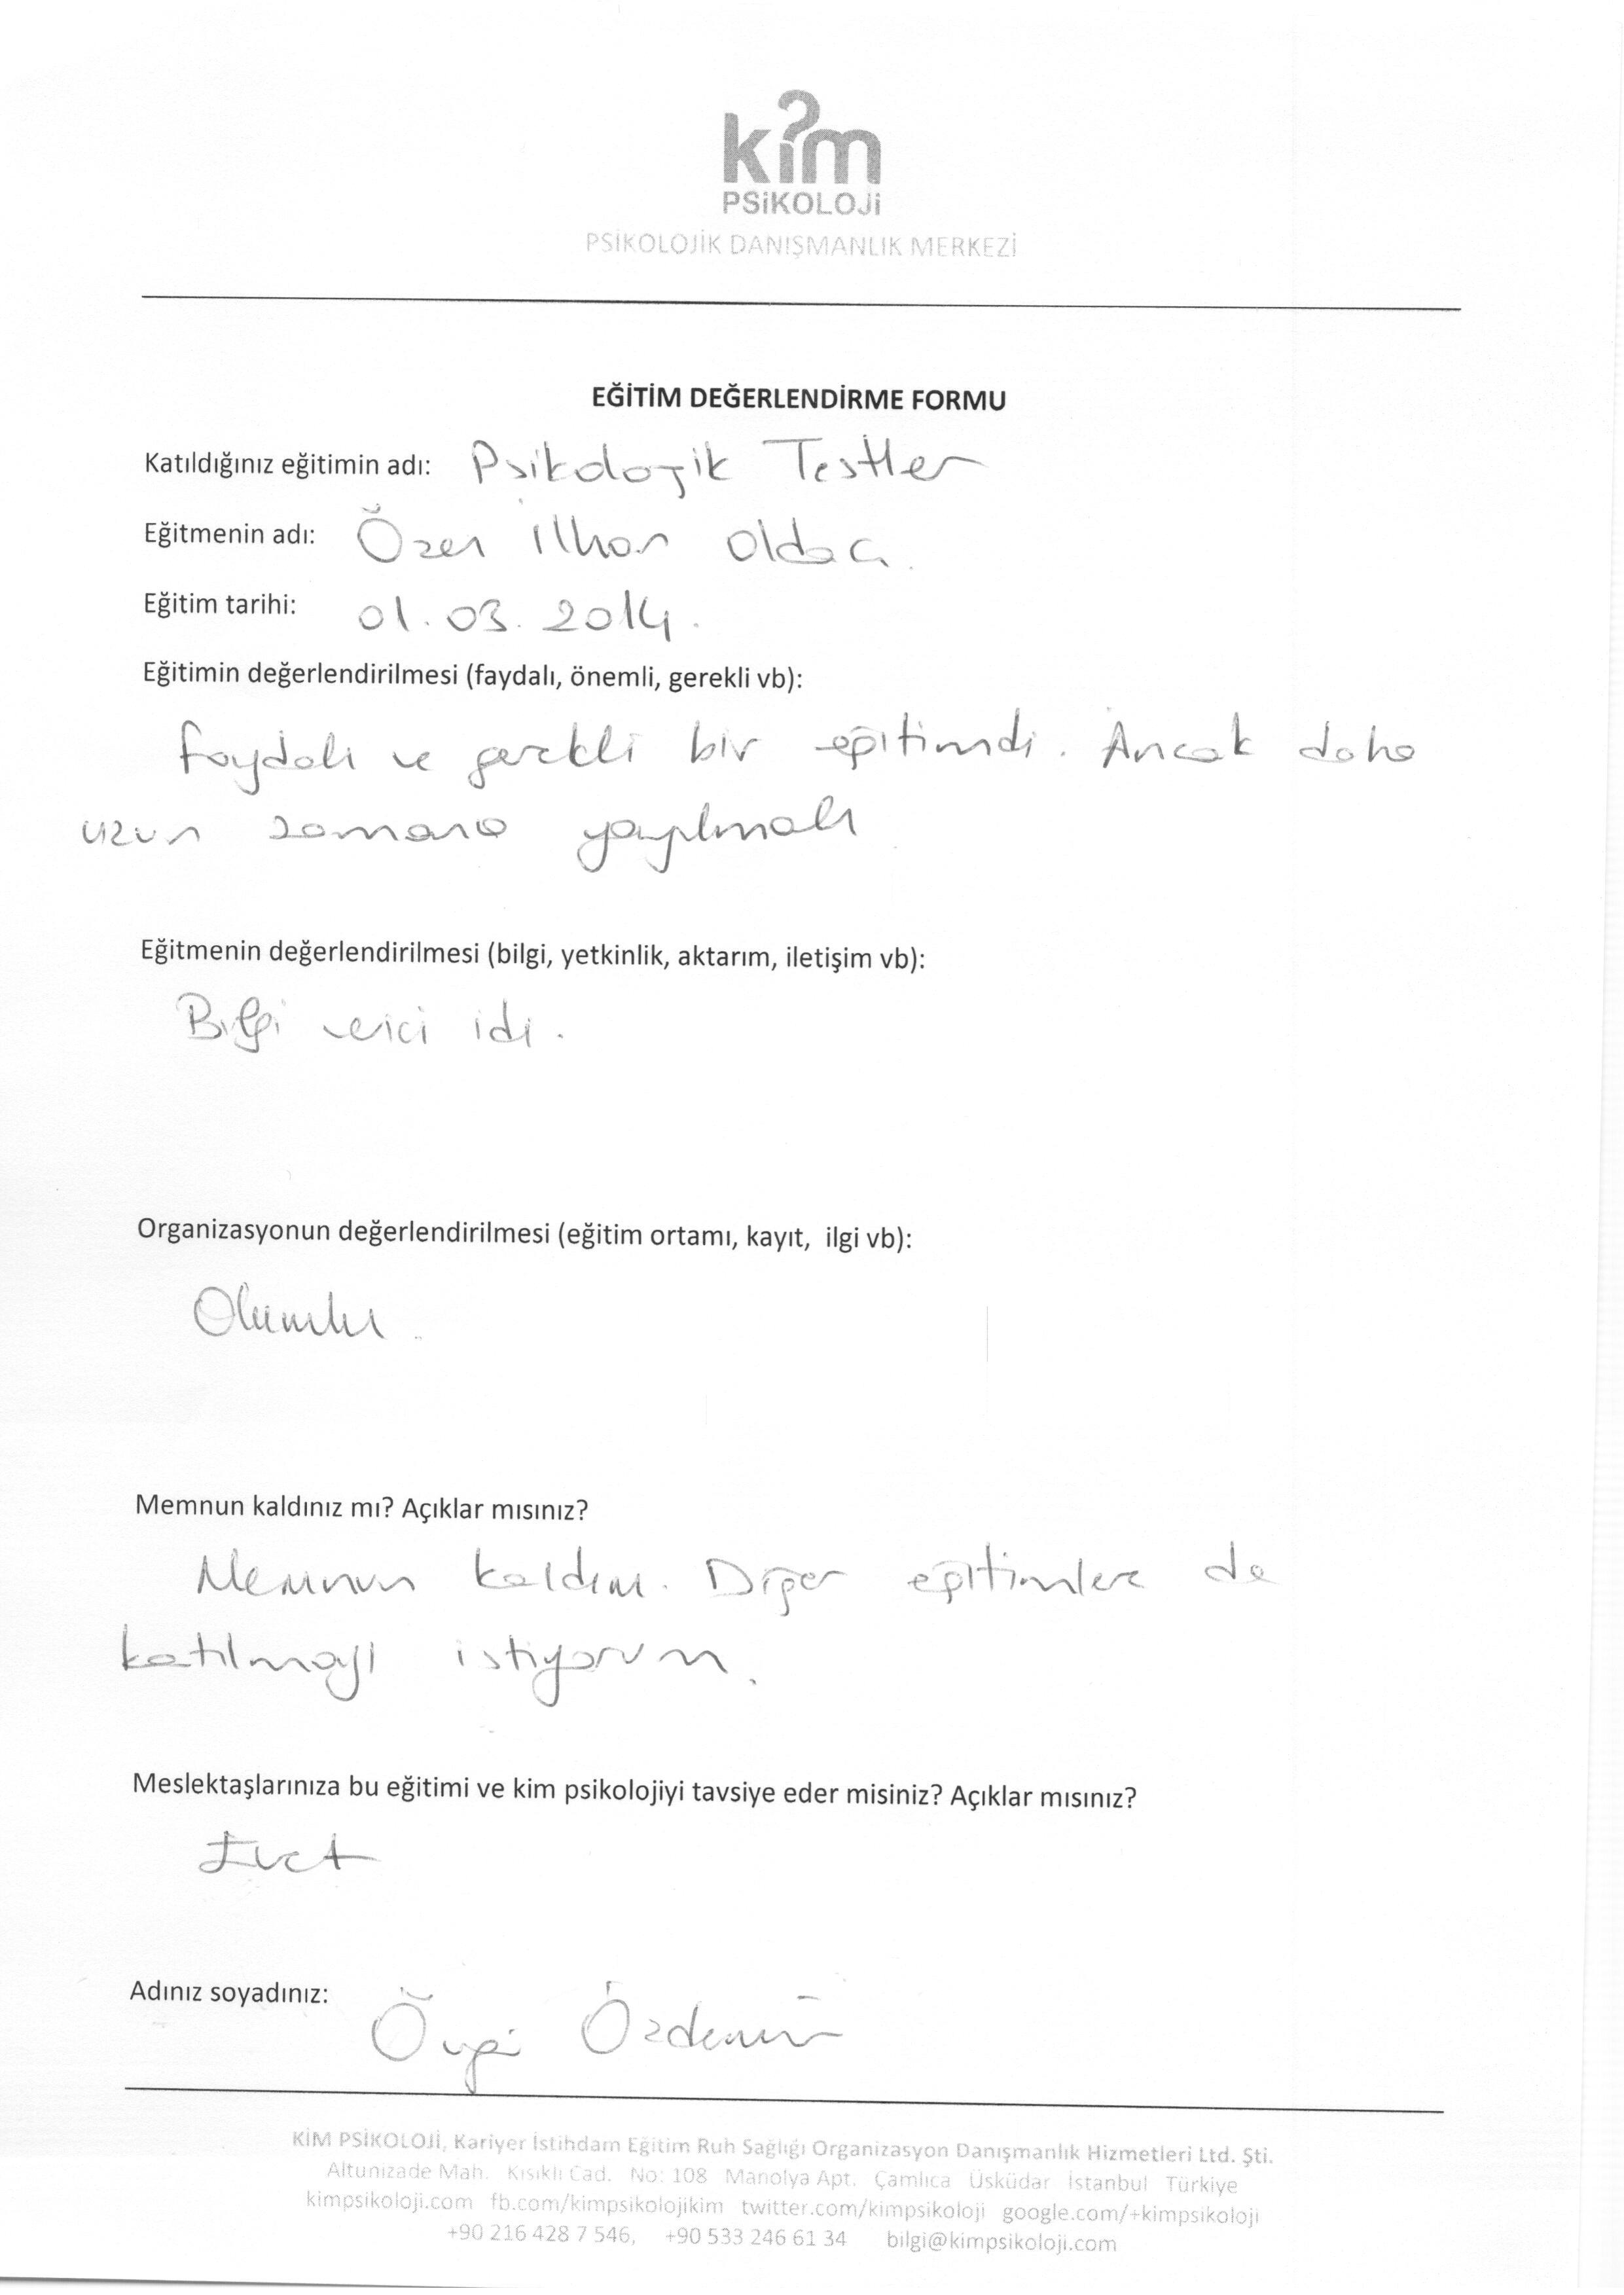 kim
PSiKOLOJi
PSİKOLOJİK DANIŞMANLIK MERKEZİ
EĞİTİM DEĞERLENDİRME FORMU
Katıldığınız eğitimin adı: Psikolojik Testler
Eğitmenin adı: Özer ilhan oldacı
Eğitim tarihi: 01.03.2014.
Eğitimin değerlendirilmesi (faydalı, önemli, gerekli vb):
faydalı ve gerekli bir eğitimdi. Ancak daha
uzun zamana yayılmalı
Eğitmenin değerlendirilmesi (bilgi, yetkinlik, aktarım, iletişim vb):
Bilgi verici idi.
Organizasyonun değerlendirilmesi (eğitim ortamı, kayıt, ilgi vb):
Olumlu.
Memnun kaldınız mı? Açıklar mısınız?
Memnun kaldım. Diğer eğitimlere de
katılmayı istiyorum.
Meslektaşlarınıza bu eğitimi ve kim psikolojiyi tavsiye eder misiniz? Açıklar mısınız?
Evet
Adınız soyadınız: Övgü Özdemir
KİM PSİKOLOJİ, Kariyer İstihdam Eğitim Ruh Sağlığı Organizasyon Danışmanlık Hizmetleri Ltd. Şti.
Altunizade Mah. Kısıklı Cad. No: 108 Manolya Apt. Çamlıca Üsküdar İstanbul Türkiye
kimpsikoloji.com fb.com/kimpsikolojikim twitter.com/kimpsikoloji google.com/+kimpsikoloji
+90 216 428 7 546, +90 533 246 61 34 bilgi@kimpsikoloji.com